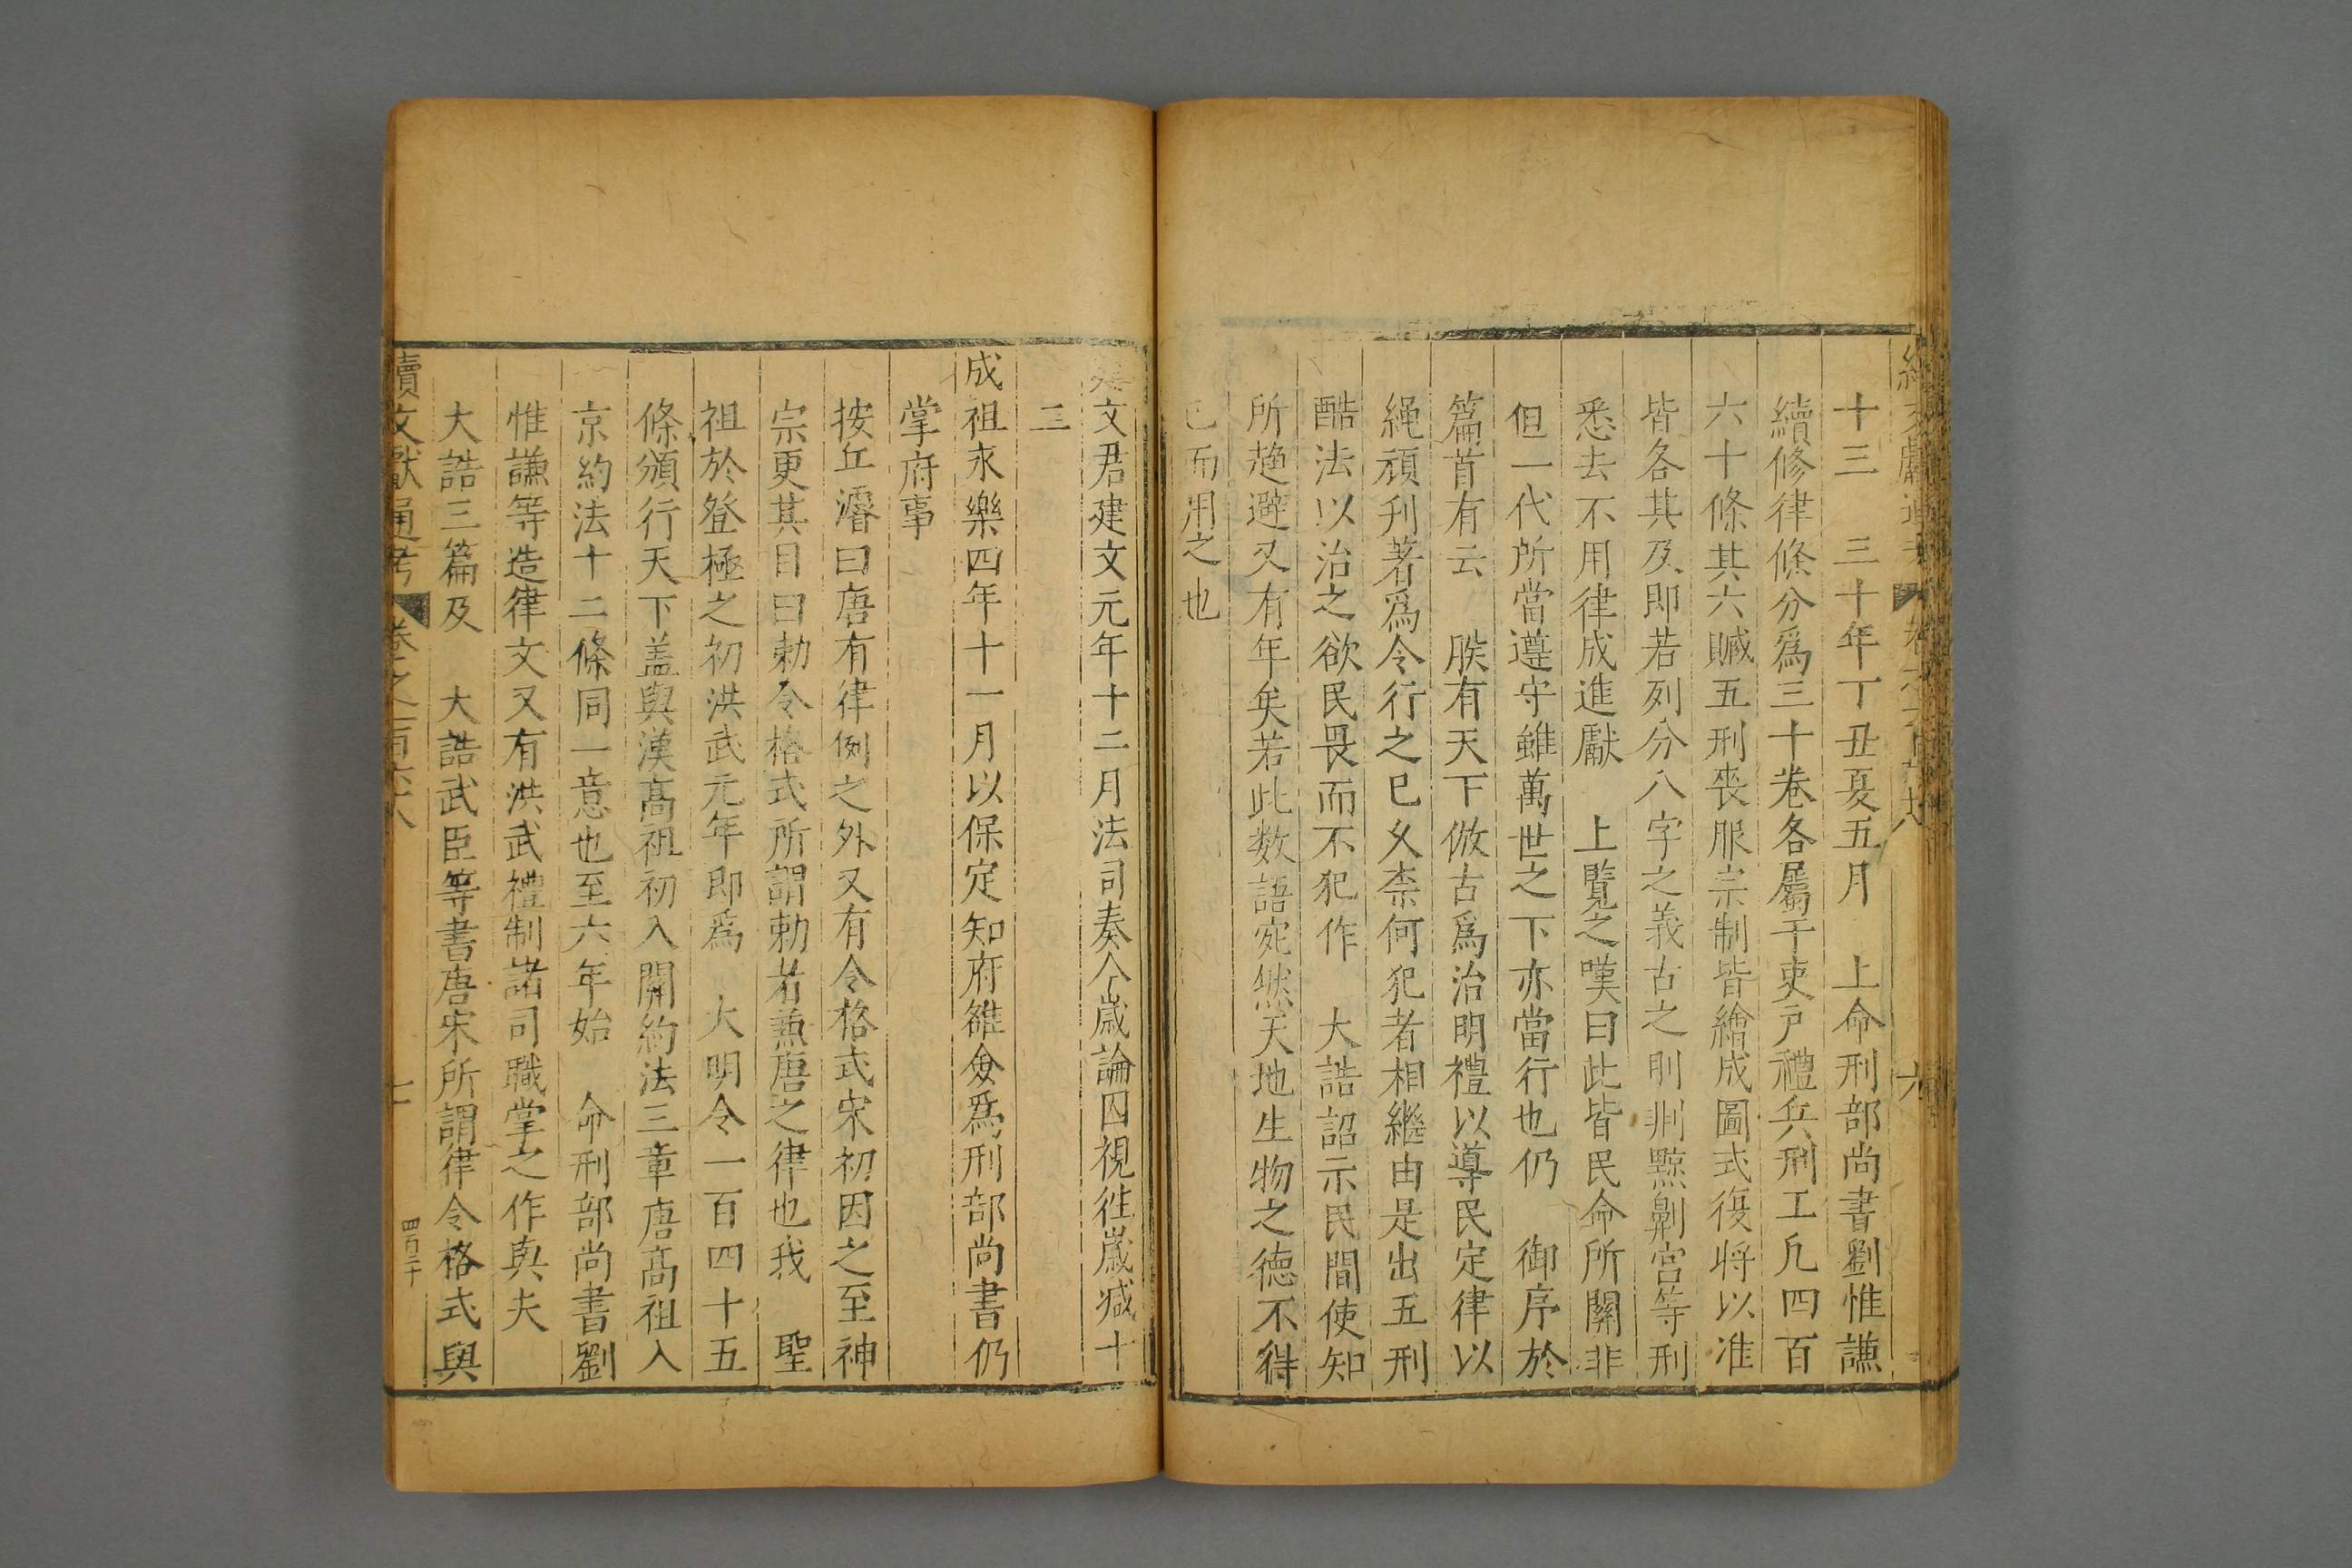 十三　三十年丁丑夏五月　上命刑部尚書劉惟謙
續修律條分爲三十卷各屬于吏戸禮兵刑工凡四百
六十條其六贓五刑喪服宗制皆繪成圖式復將以准
皆各其及即若列分八字之義古之刖剕黥劓宫等刑
悉去不用律成進獻　上覧之嘆曰此皆民命所關非
但一代所當遵守雖萬世之下亦當行也仍　御序於
篇首有云　朕有天下倣古爲治明禮以導民定律以
繩頑刋著爲令行之已久柰何犯者相繼由是出五刑
酷法以治之欲民畏而不犯作　大誥詔示民間使知
所趨避又有年矣若此数語宛然天地生物之德不得
已而用之也
文君建文元年十二月法司奏今歳論囚視徃歳减十
三
成祖永樂四年十一月以保定知府雒僉爲刑部尚書仍
掌府事
按丘濬曰唐有律例之外又有令格式宋初因之至神
宗更其目曰勅令格式所謂勅者兼唐之律也我　聖
祖於登極之初洪武元年即爲　大明令一百四十五
條頒行天下盖與漢髙祖初入關約法三章唐髙祖入
京約法十二條同一意也至六年始　命刑部尚書劉
惟謙等造律文又有洪武禮制諸司職掌之作與夫
大誥三篇及　大誥武臣等書唐宋所謂律令格式與
續文獻通考　卷之一百六十八　七　四百二十